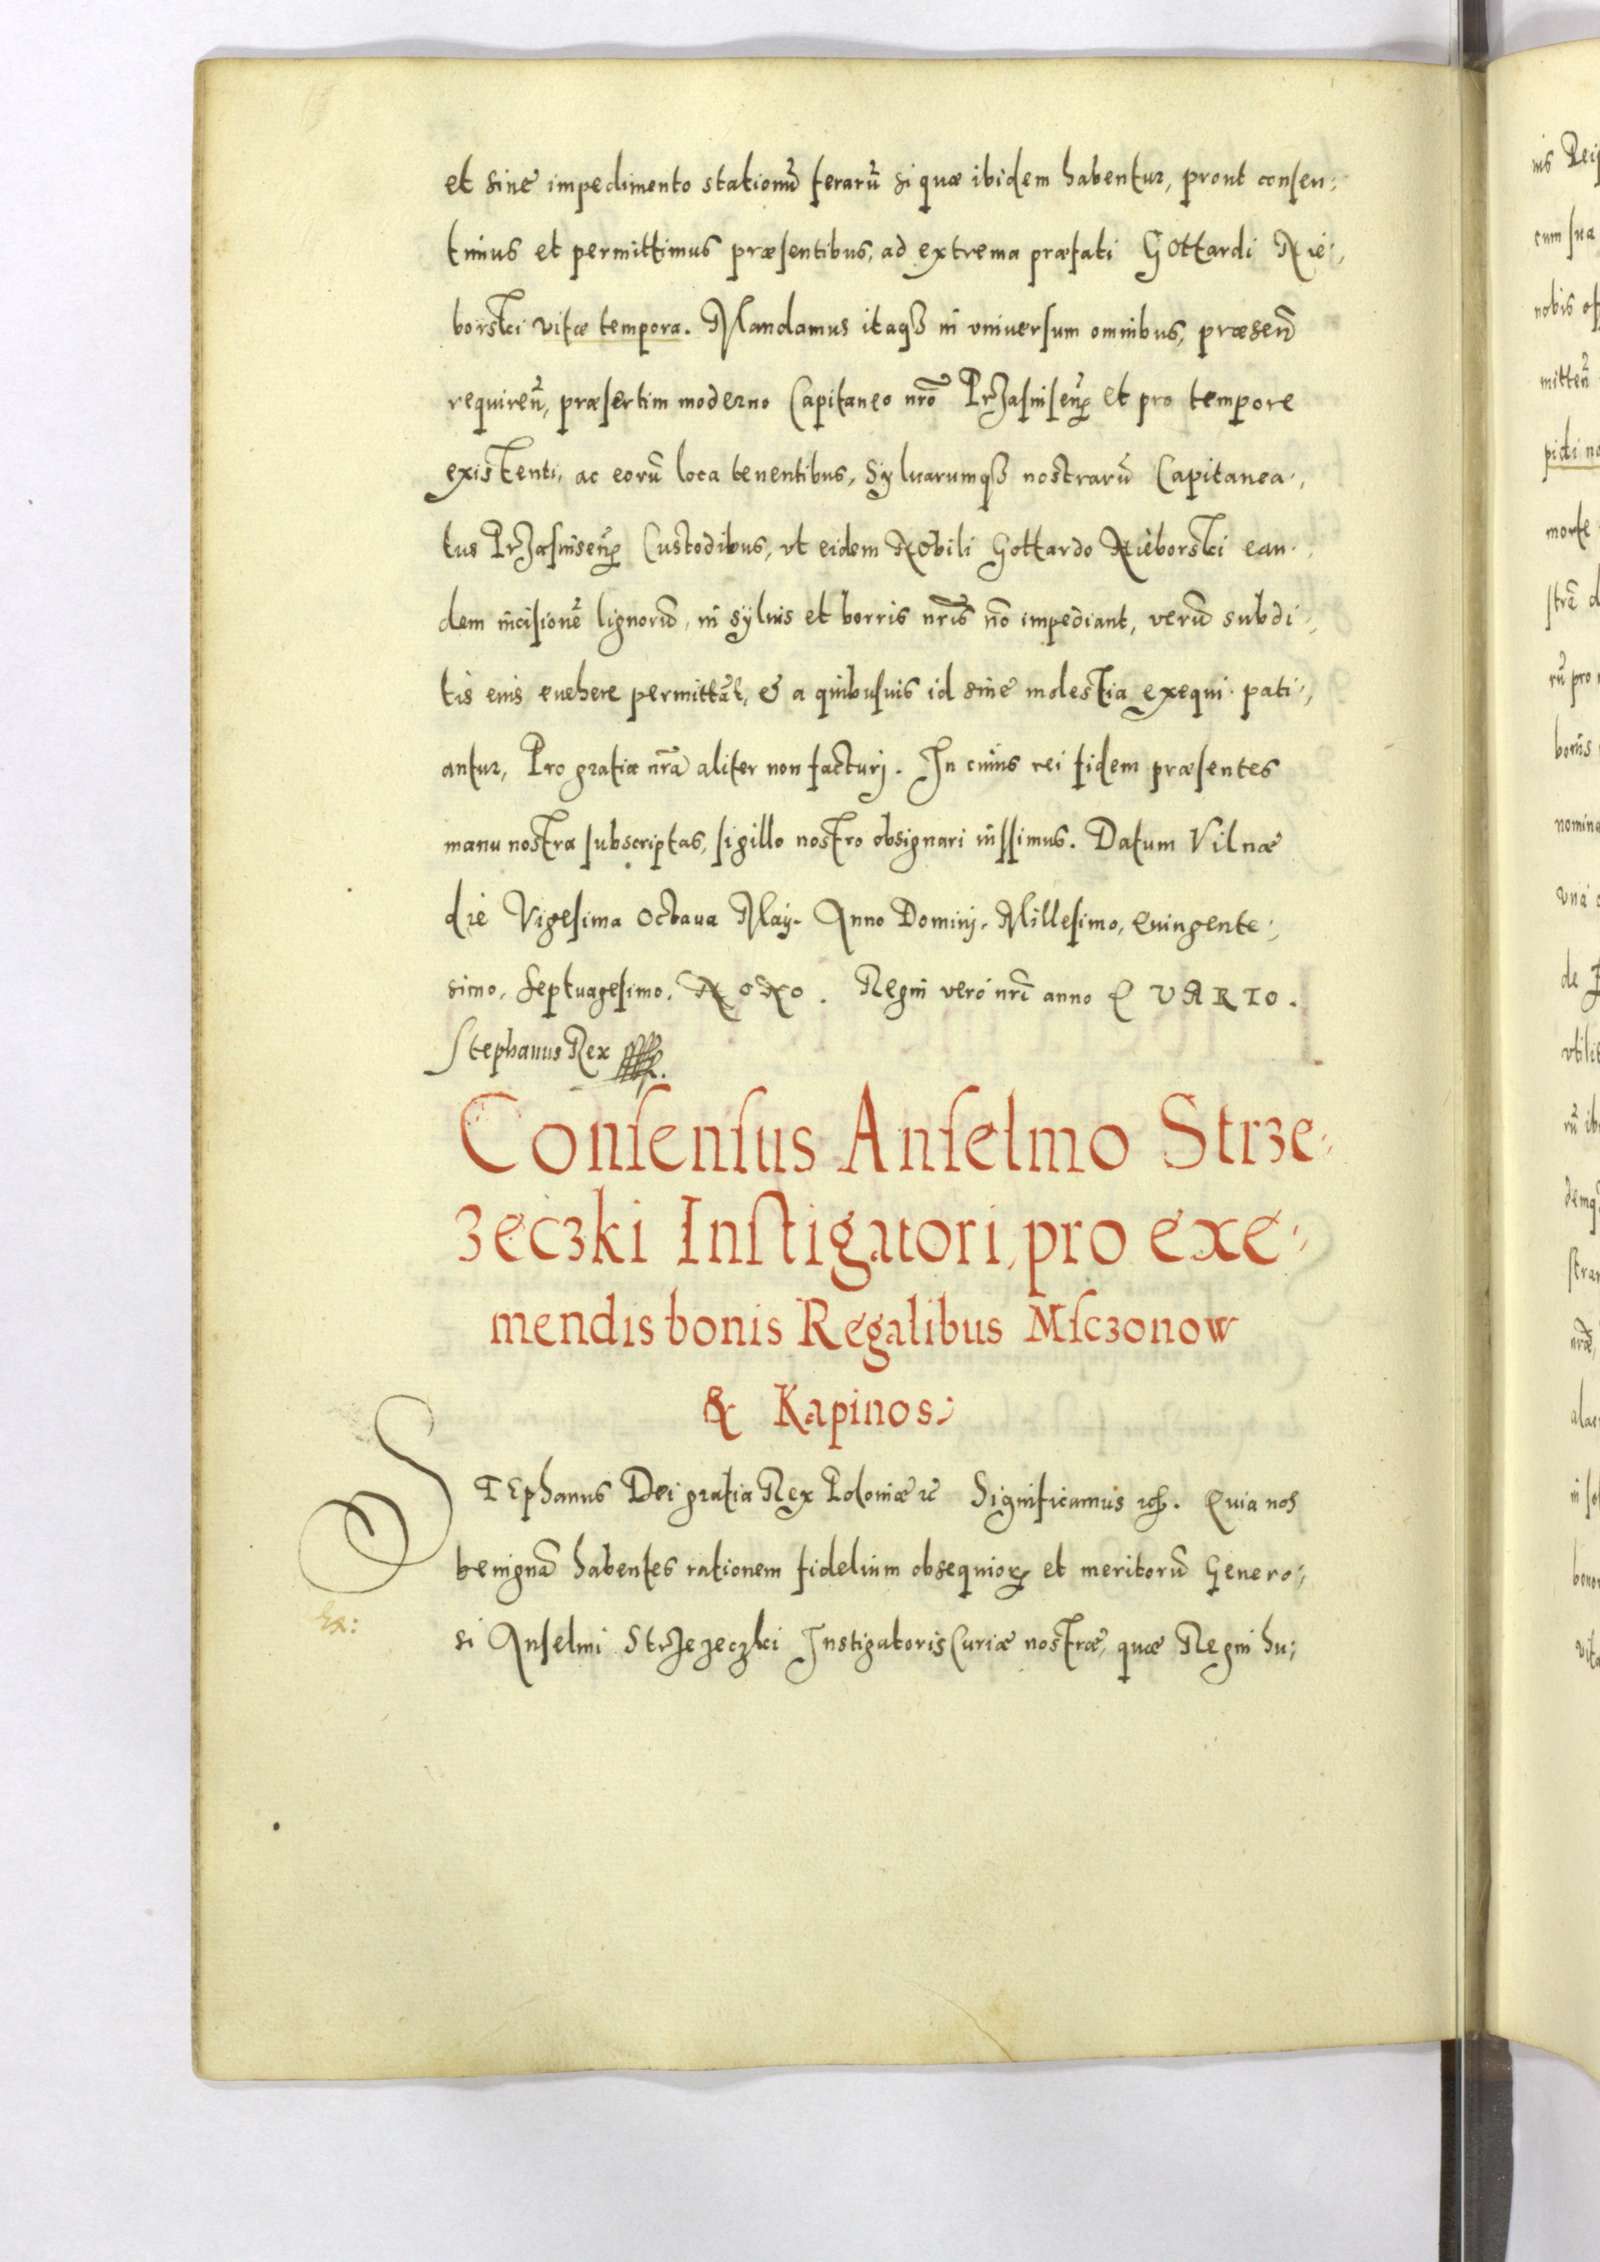 et sine impedimento stationũ ferarũ si quæ ibidem habentur, prout consen:,
timus et permittimus præsentibus, ad extrema præfati Gottardi Nie:,
borski vitæ tempora. Mandamus itaqȝ in vniuersum omnibus, præseñ
requireñ, præsertim moderno Capitaneo nrõ Przasniseñ et pro tempore
existenti, ac eorũ loca tenentibus, Syluarumqȝ nostrarũ Capitanea:,
tus Przasniseñ Custodibus, vt eidem Nobili Gottardo Nieborski ean:
dem incisionẽ lignorũ, in syluis et borris nrĩs nõ impediant, verũ subdi:,
tis eius euehere permittãt, & a quibusuis id sine molestia exequi pati:,
antur, Pro gratia nrã aliter non facturj. In cuius rei fidem præsentes
manu nostra subscriptas, sigillo nostro obsignari iussimus. Datum Vilnæ
die Vigesima Octaua Maij. Anno Dominj. Millesimo, Quingente:,
simo, Septuagesimo, NONO. Regni vero nrĩ anno QVARTO.
Stephanus Rex
Consensus Anselmo Strze:
zeczki Instigatori, pro exe:
mendis bonis Regalibus Msczonow
& Kapinos:
STEphanus Dei gratia Rex Poloniæ ꝛc Significamus ꝛc. Quia nos
benignã habentes rationem fidelium obsequioꝝ et meritorũ Genero:,
si Anselmi Strzezeczki Instigatoris Curiæ nostræ, quæ Regni hu:
nis
cum sua
nobis
mitteñ
morte
rũ pro
vna
de
mendis